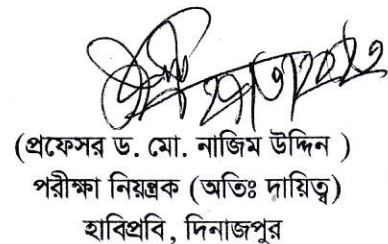 (প্রফেসর ড. মো. নাজিম উদ্দিন )
পরীক্ষা নিয়ন্ত্রক (অতিঃ দায়িত্ব)
হাবিপ্রবি, দিনাজপুর